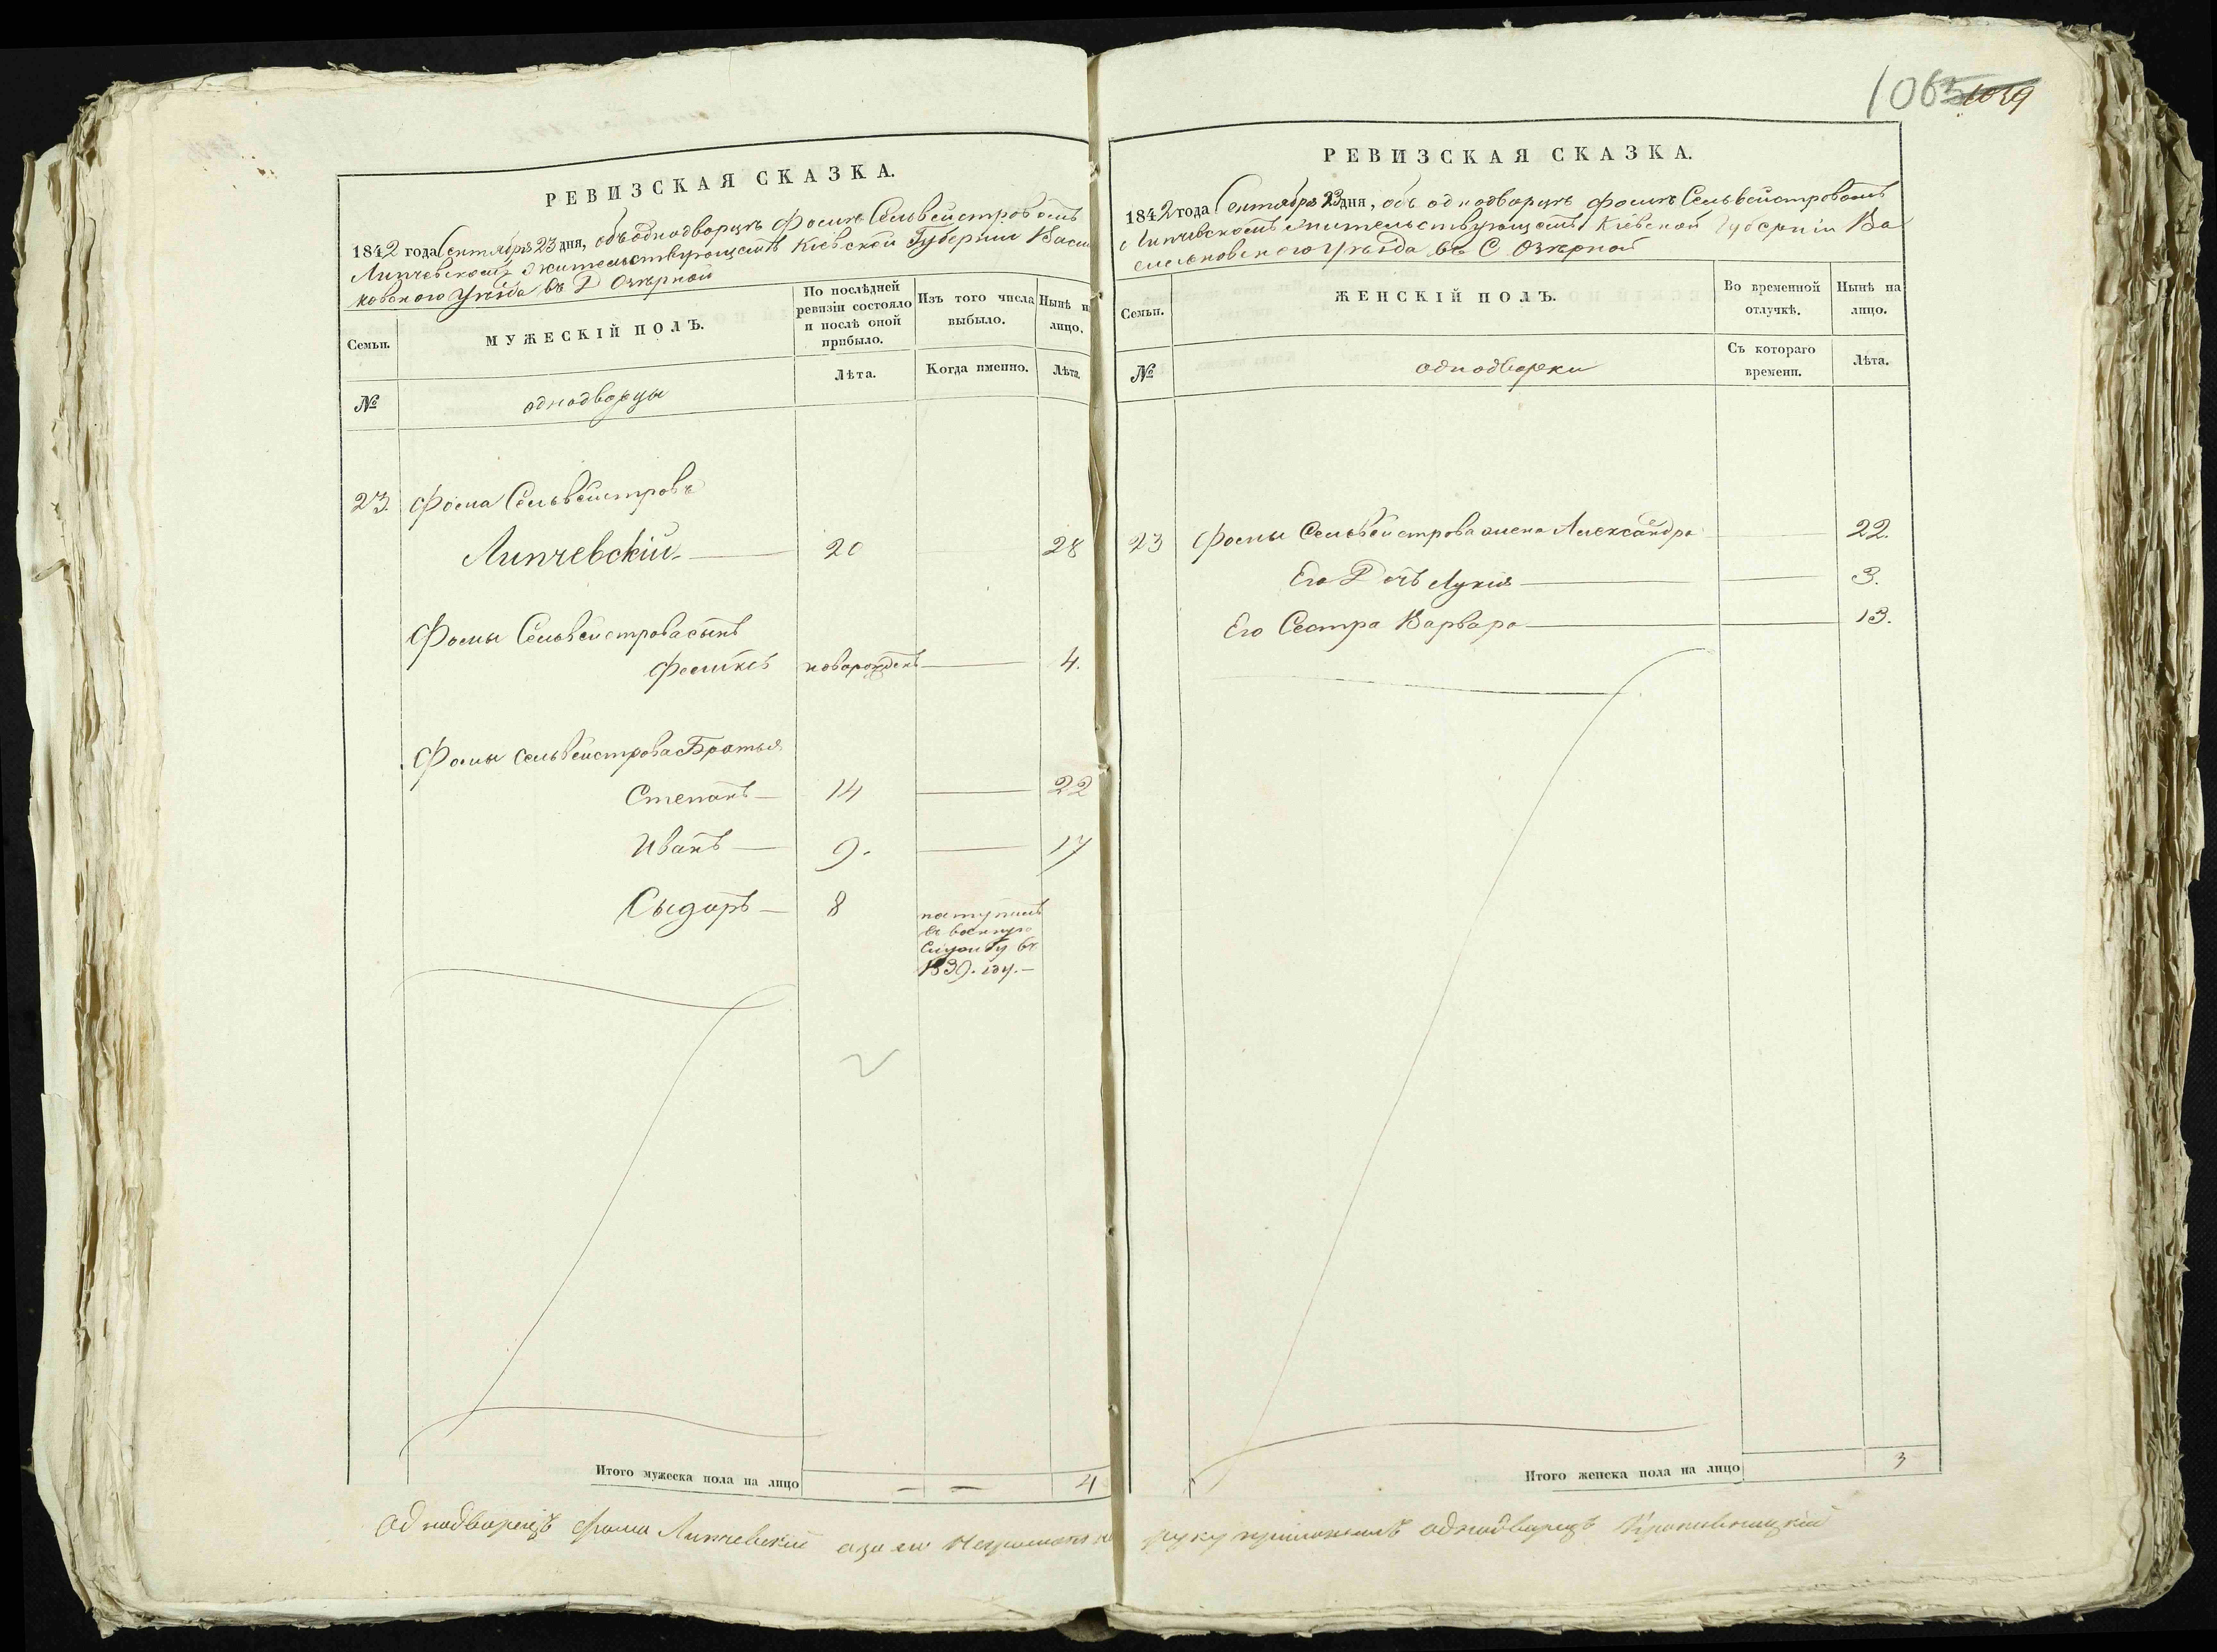 РЕВИЗСКАЯ СКАЗКА.
1842 года Сентября 23 дня, объ однодворцѣ Фомѣ Сельвейстровомъ
Липчевскомъ жительствующемъ Кіевской Губерніи Васи
ковского Уѣзда въ Д Озѣрной
Семьи.
МУЖЕСКІЙ ПОЛЪ.
По послѣдней ревизіи состояло и послѣ оной прибыло.
Изъ того числа выбыло.
Нынѣ н лицо.
№
однодворцы
Лѣта.
Когда именно.
Лѣта.
23. Фома Сельвейстровъ
Липчевскій — 20 28
Фомы Сельвейстрова сынъ
Феликсъ новорожденъ — 4.
Фомы Сельвейстрова Братья
Степанъ — 14 — 22
Иванъ — 9. — 17
Сыдоръ — 8 поступилъ
въ военную
службу въ
1839. году. —
Итого мужеска пола на лицо — — 4
Однодворецъ Фома Липчевскій а за его Неграмотн
1065 1039
РЕВИЗСКАЯ СКАЗКА.
1842 года Сентября 23 дня, объ однодворцѣ Фомѣ Сельвейстровомъ
Липчевскомъ жительствующемъ Кіевской Губерніи Ва
сильковского Уѣзда въ С. Озѣрной
Семьи.
ЖЕНСКІЙ ПОЛЪ.
Во временной отлучкѣ.
Нынѣ на лицо.
№
однодворки
Съ котораго времени.
Лѣта.
23 Фомы Сельвейстрова жена Александра — 22.
Его Дочь Лукія — — 3.
Его Сестра Варвара — — 13.
Итого женска пола на лицо 3
руку приложилъ однодворецъ Кропивницкій